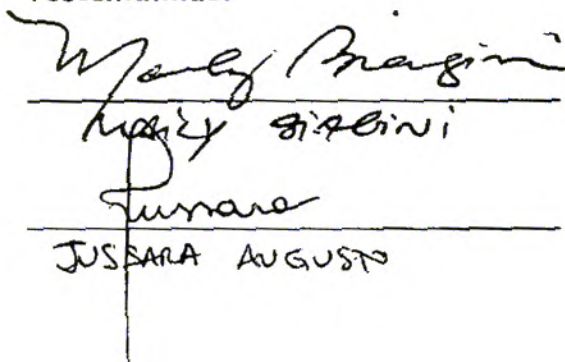 Marly Biagini
MARLY BIAGINI
Jussara
JUSSARA AUGUSTO